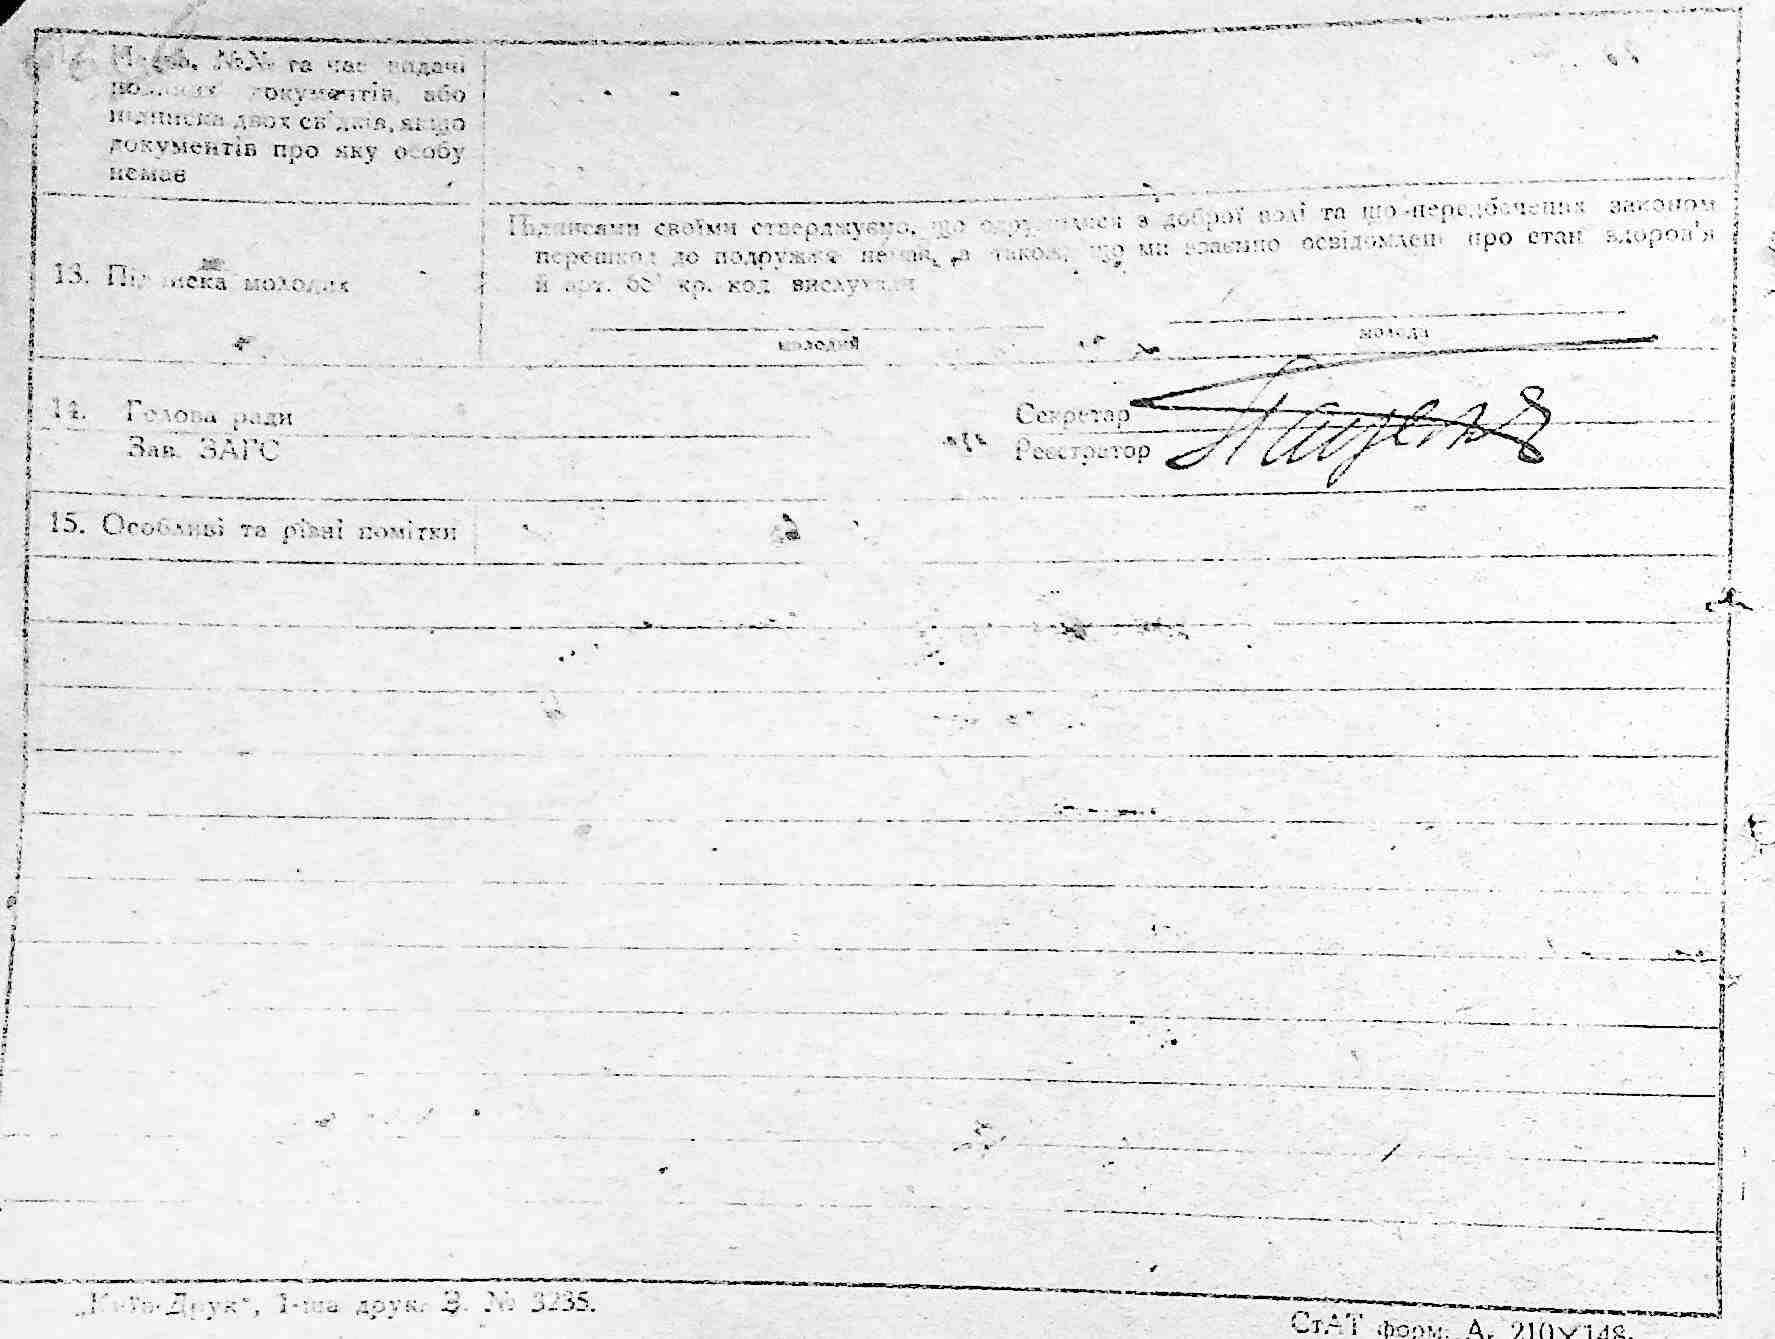 №№ та час видачі
документів, або
підписка двох свідків, якщо
документів про яку особу
немає
Підписами своїми стверджуємо, що одружилися з доброї волі та що передбачених законом
13. Підписка молодих
перешкод до подружжя немає, а також, що ми взаємно освідомлені про стан здоров'я
й арт. кр. код. вислухали
молодий
молода
14. Голова ради
Секретар
Зав. ЗАГС
Реєстратор
15. Особливі та різні помітки
„Київ-Друк“, 1-ша друк. З. № 3235.
СтАТ форм. А. 210×148.